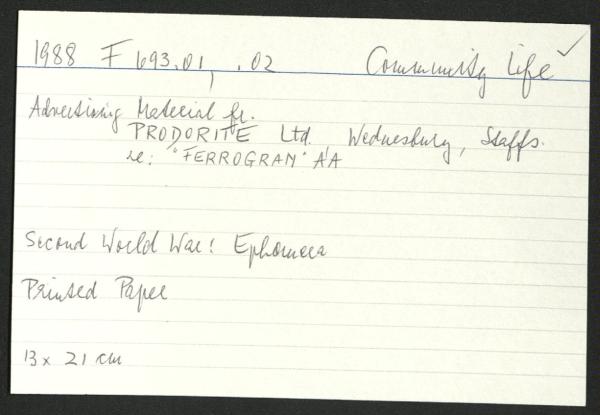 1988 F 693.01, .02 Community Life ✓
Advertising Material fr.
PRODORITE Ltd. Wednesbury, Staffs.
re: "FERROGRAN" A'A
Second World War: Ephemera
Printed Paper
13 x 21 cm